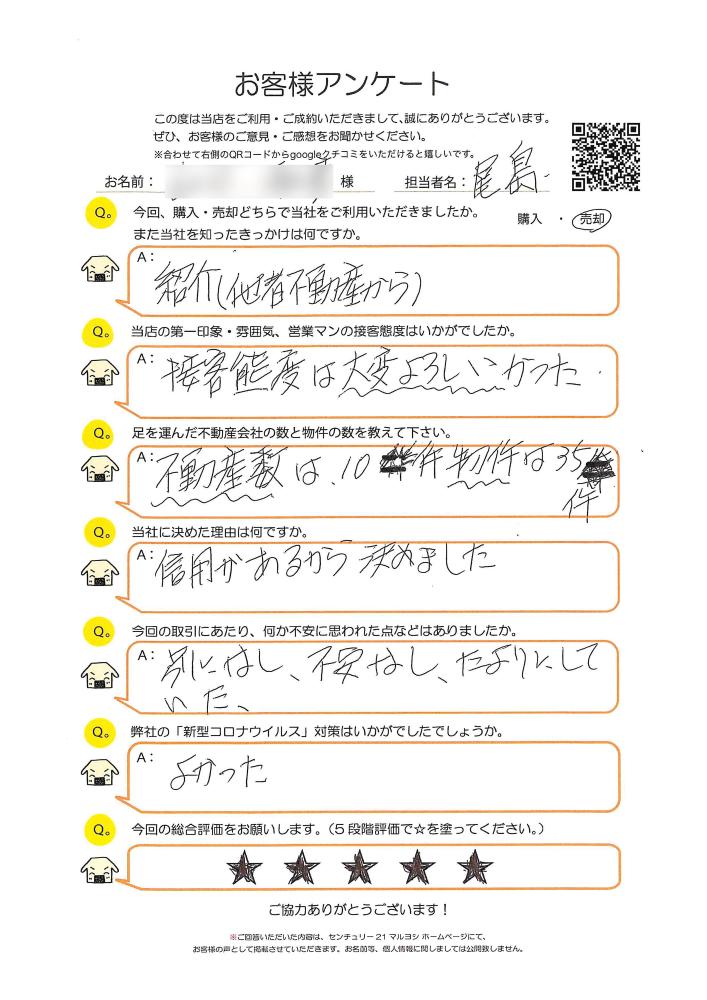 お客様アンケート
この度は当店をご利用・ご成約いただきまして、誠にありがとうございます。
ぜひ、お客様のご意見・ご感想をお聞かせください。
※合わせて右側のQRコードからgoogleクチコミをいただけると嬉しいです。
お名前： 様 担当者名： 尾島
Q。 今回、購入・売却どちらで当社をご利用いただきましたか。 購入 ・ 売却
また当社を知ったきっかけは何ですか。
A：
紹介(他者不動産から)
Q。 当店の第一印象・雰囲気、営業マンの接客態度はいかがでしたか。
A： 接客態度は大変よろしいかった
Q。 足を運んだ不動産会社の数と物件の数を教えて下さい。
A： 不動産数は、10件物件は35
件
Q。 当社に決めた理由は何ですか。
A： 信用があるから決めました
Q。 今回の取引にあたり、何か不安に思われた点などはありましたか。
A： 別になし、不安なし、たよりにして
いた、
Q。 弊社の「新型コロナウイルス」対策はいかがでしたでしょうか。
A： よかった
Q。 今回の総合評価をお願いします。（5段階評価で☆を塗ってください。）
A： ★ ★ ★ ★ ★
ご協力ありがとうございます！
※ご回答いただいた内容は、センチュリー21 マルヨシ ホームページにて、
お客様の声として掲載させていただきます。お名前等、個人情報に関しましては公開致しません。